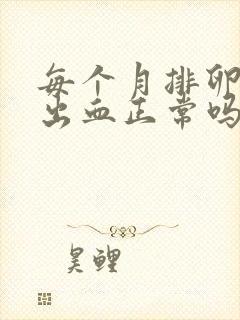 每个月排卵
出血正常吗
昊鲤